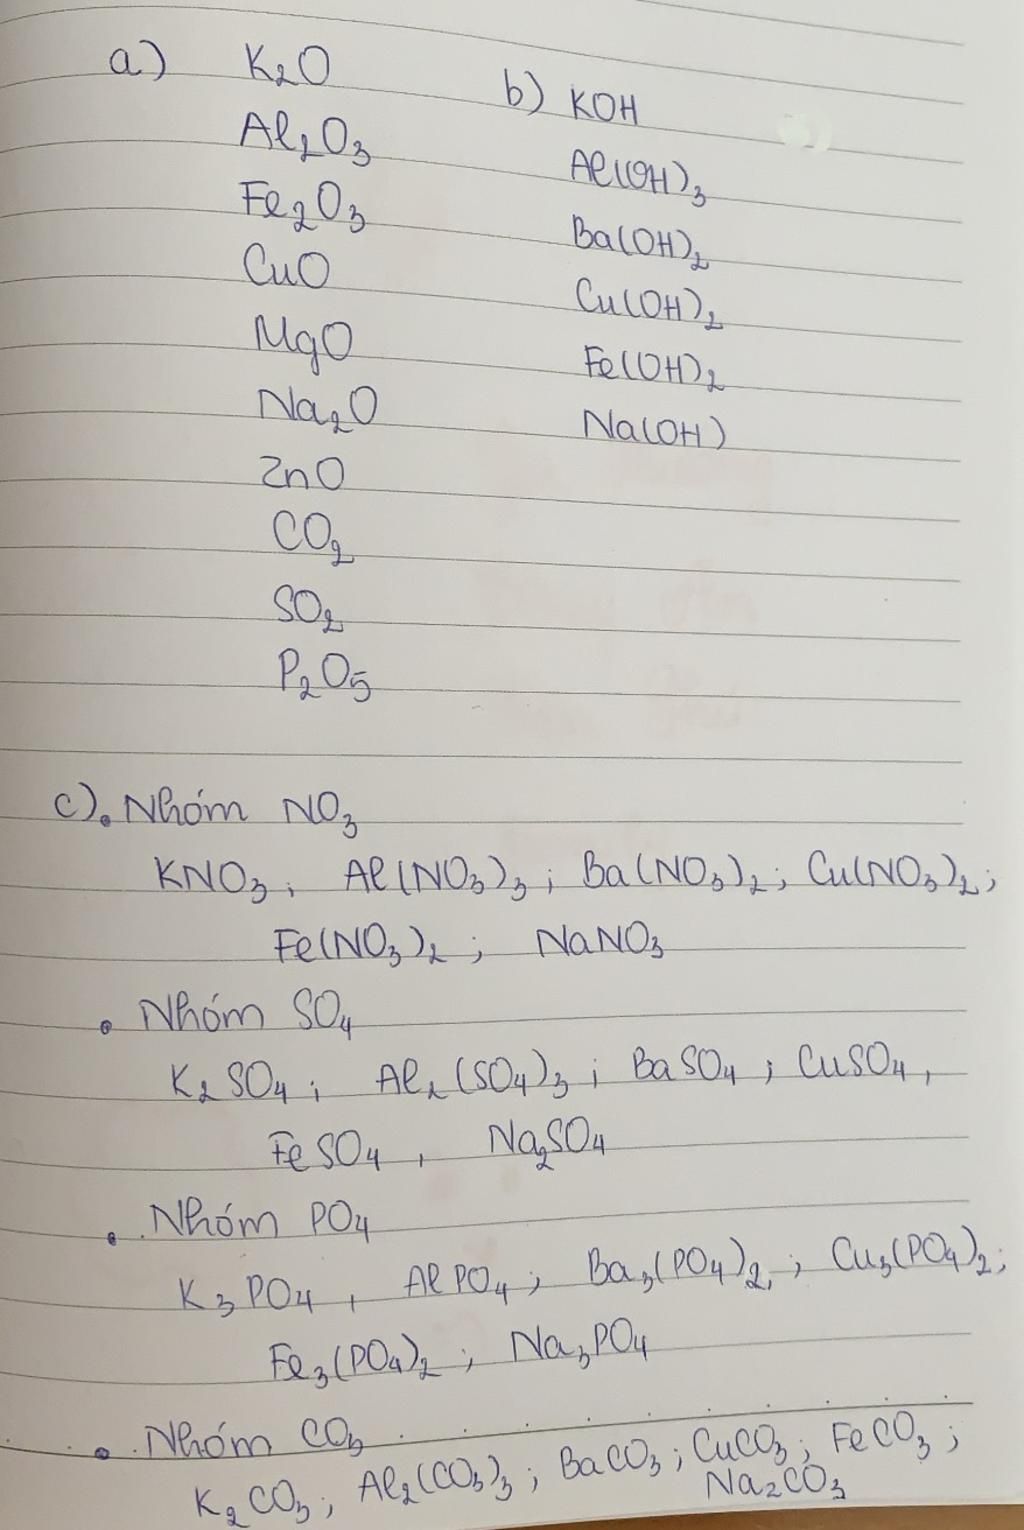 a) K₂O
Al₂O₃
Fe₂O₃
CuO
MgO
Na₂O
ZnO
CO₂
SO₂
P₂O₅
b) KOH
Al(OH)₃
Ba(OH)₂
Cu(OH)₂
Fe(OH)₂
Na(OH)
c). Nhóm NO₃
KNO₃; Al(NO₃)₃; Ba(NO₃)₂; Cu(NO₃)₂;
Fe(NO₃)₂; NaNO₃
• Nhóm SO₄
K₂SO₄; Al₂(SO₄)₃; BaSO₄; CuSO₄,
FeSO₄, Na₂SO₄
• Nhóm PO₄
K₃PO₄, AlPO₄; Ba₃(PO₄)₂; Cu₃(PO₄)₂;
Fe₃(PO₄)₂; Na₃PO₄
• Nhóm CO₃
K₂CO₃; Al₂(CO₃)₃; BaCO₃; CuCO₃; FeCO₃;
Na₂CO₃